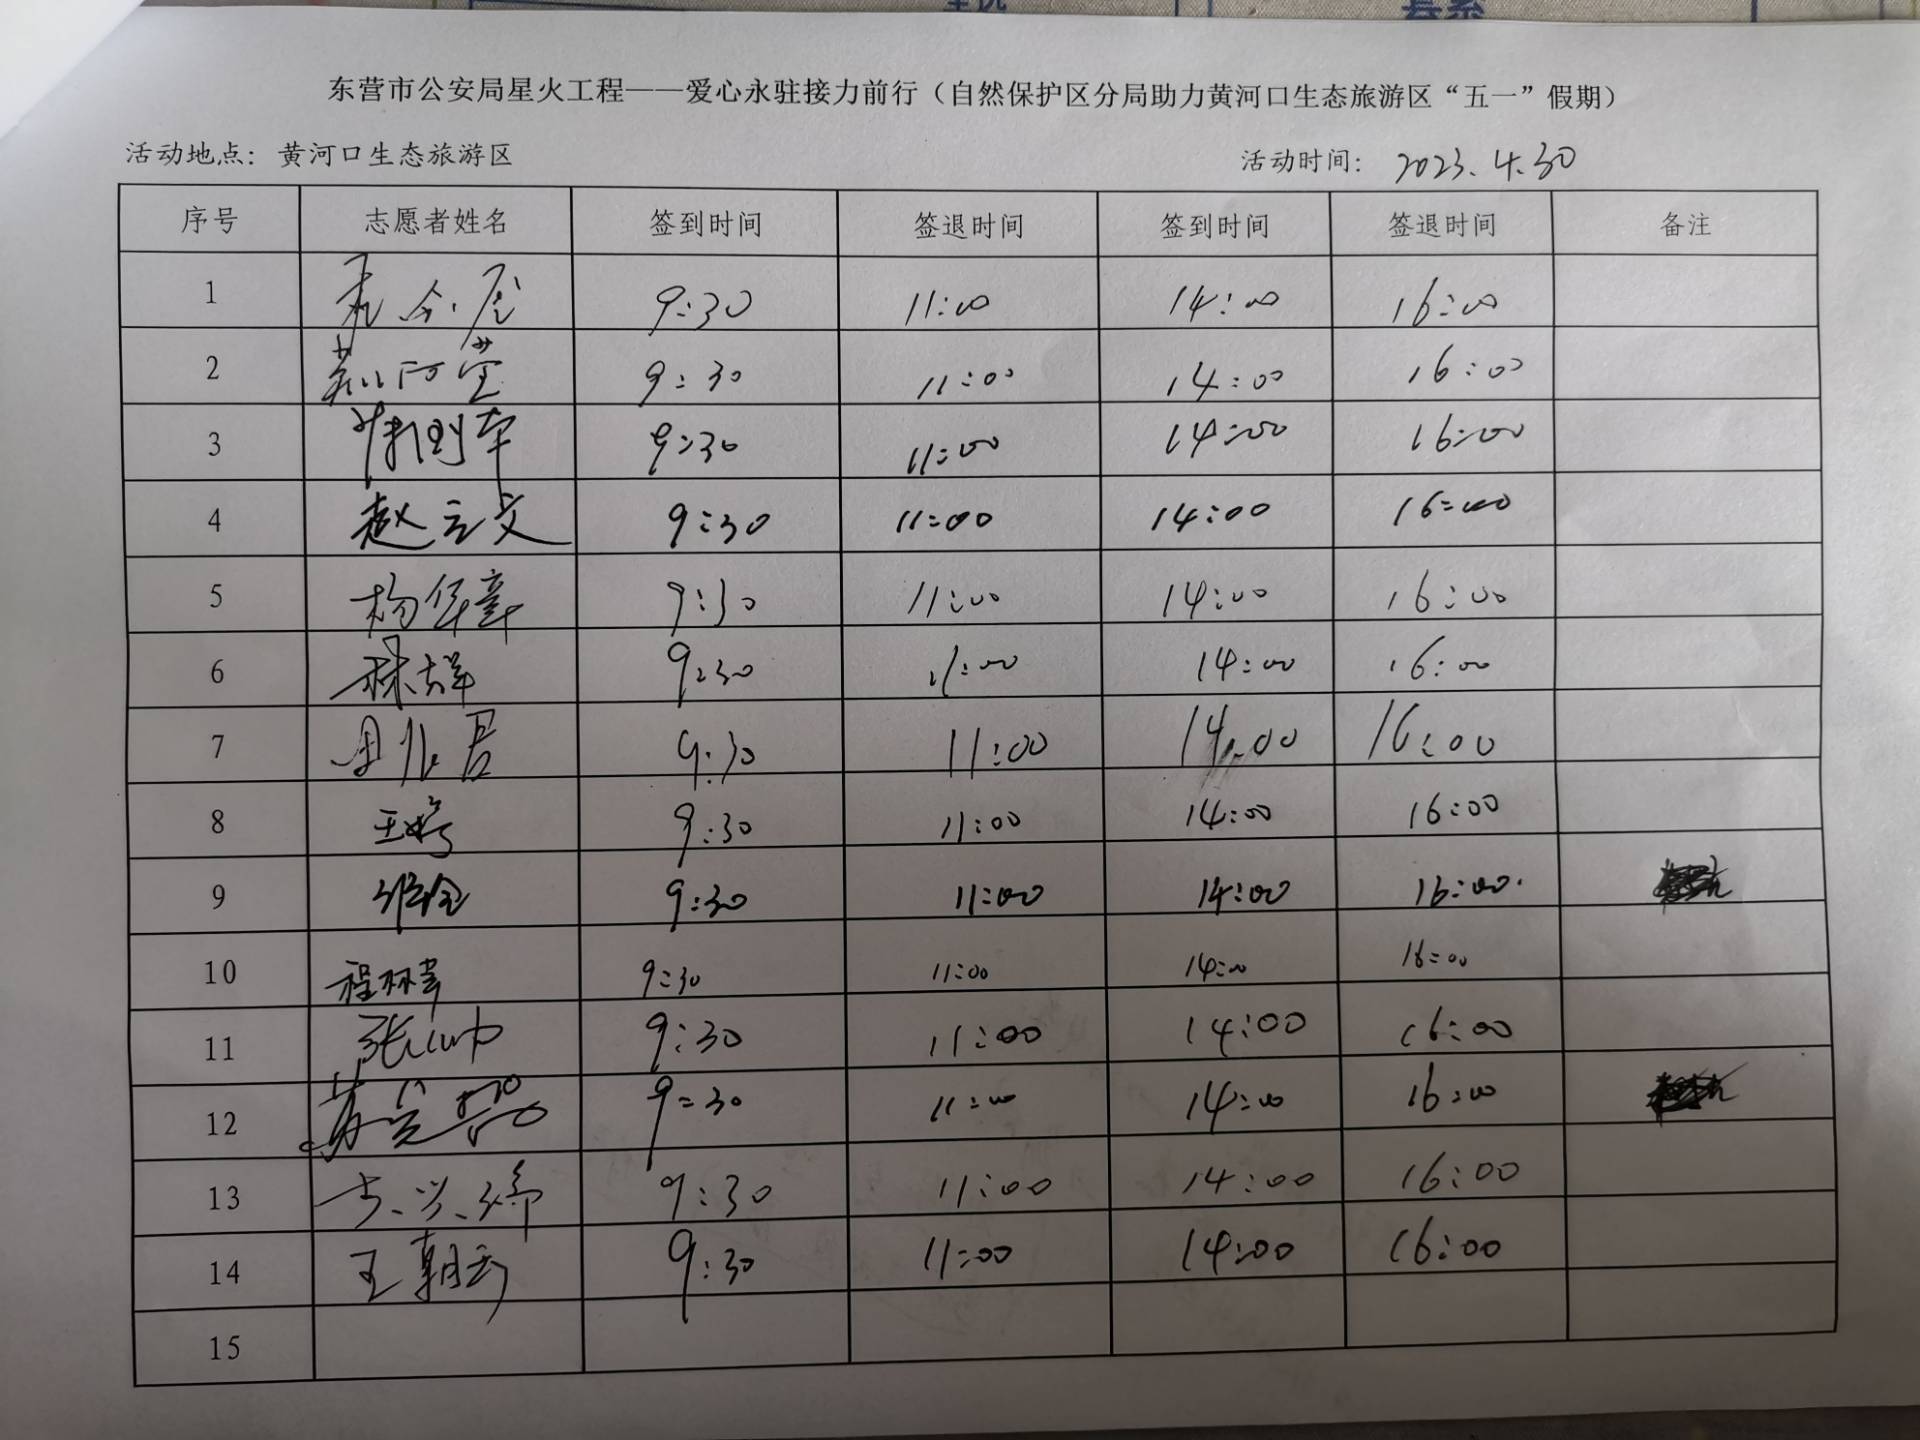 东营市公安局星火工程——爱心永驻接力前行（自然保护区分局助力黄河口生态旅游区“五一”假期）
活动地点：黄河口生态旅游区 活动时间：2023.4.30
序号 志愿者姓名 签到时间 签退时间 签到时间 签退时间 备注
1 9:30 11:00 14:00 16:00
2 9:30 11:00 14:00 16:00
3 9:30 11:00 14:00 16:00
4 赵立文 9:30 11:00 14:00 16:00
5 杨华章 9:30 11:00 14:00 16:00
6 林群 9:30 11:00 14:00 16:00
7 9:30 11:00 14:00 16:00
8 9:30 11:00 14:00 16:00
9 9:30 11:00 14:00 16:00.
10 9:30 11:00 14:00 16:00
11 张帅 9:30 11:00 14:00 16:00
12 9:30 11:00 14:00 16:00
13 9:30 11:00 14:00 16:00
14 王朝云 9:30 11:00 14:00 16:00
15